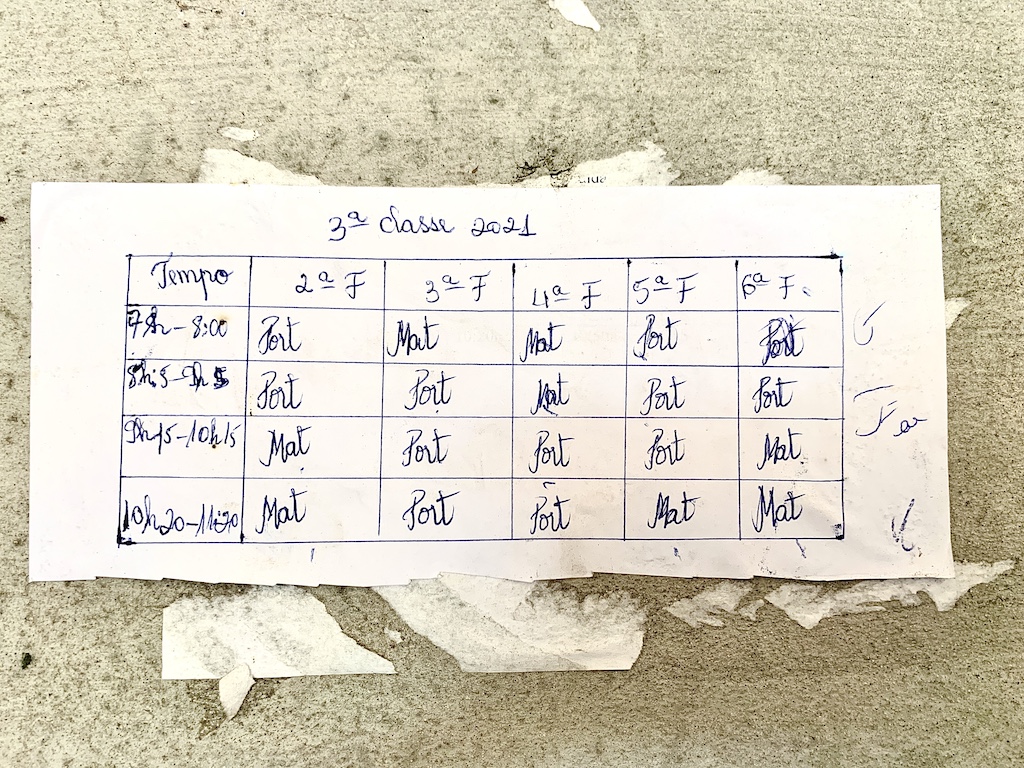 3ª classe 2021
Tempo 2ª F 3ª F 4ª F 5ª F 6ª F.
7h - 8:00 Port Mat Mat Port Port
Port Port Mat Port Port
9h15-10h15 Mat Port Port Port Mat
10h20-11:20 Mat Port Port Mat Mat